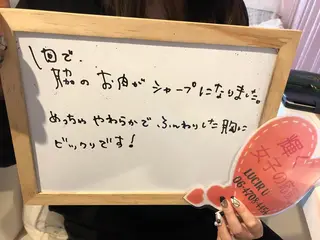 1回で、
脇のお肉がシャープになりました。
めっちゃやわらかで ふんわりした胸に
ビックリです!
輝く
女子の為
LUCIR U